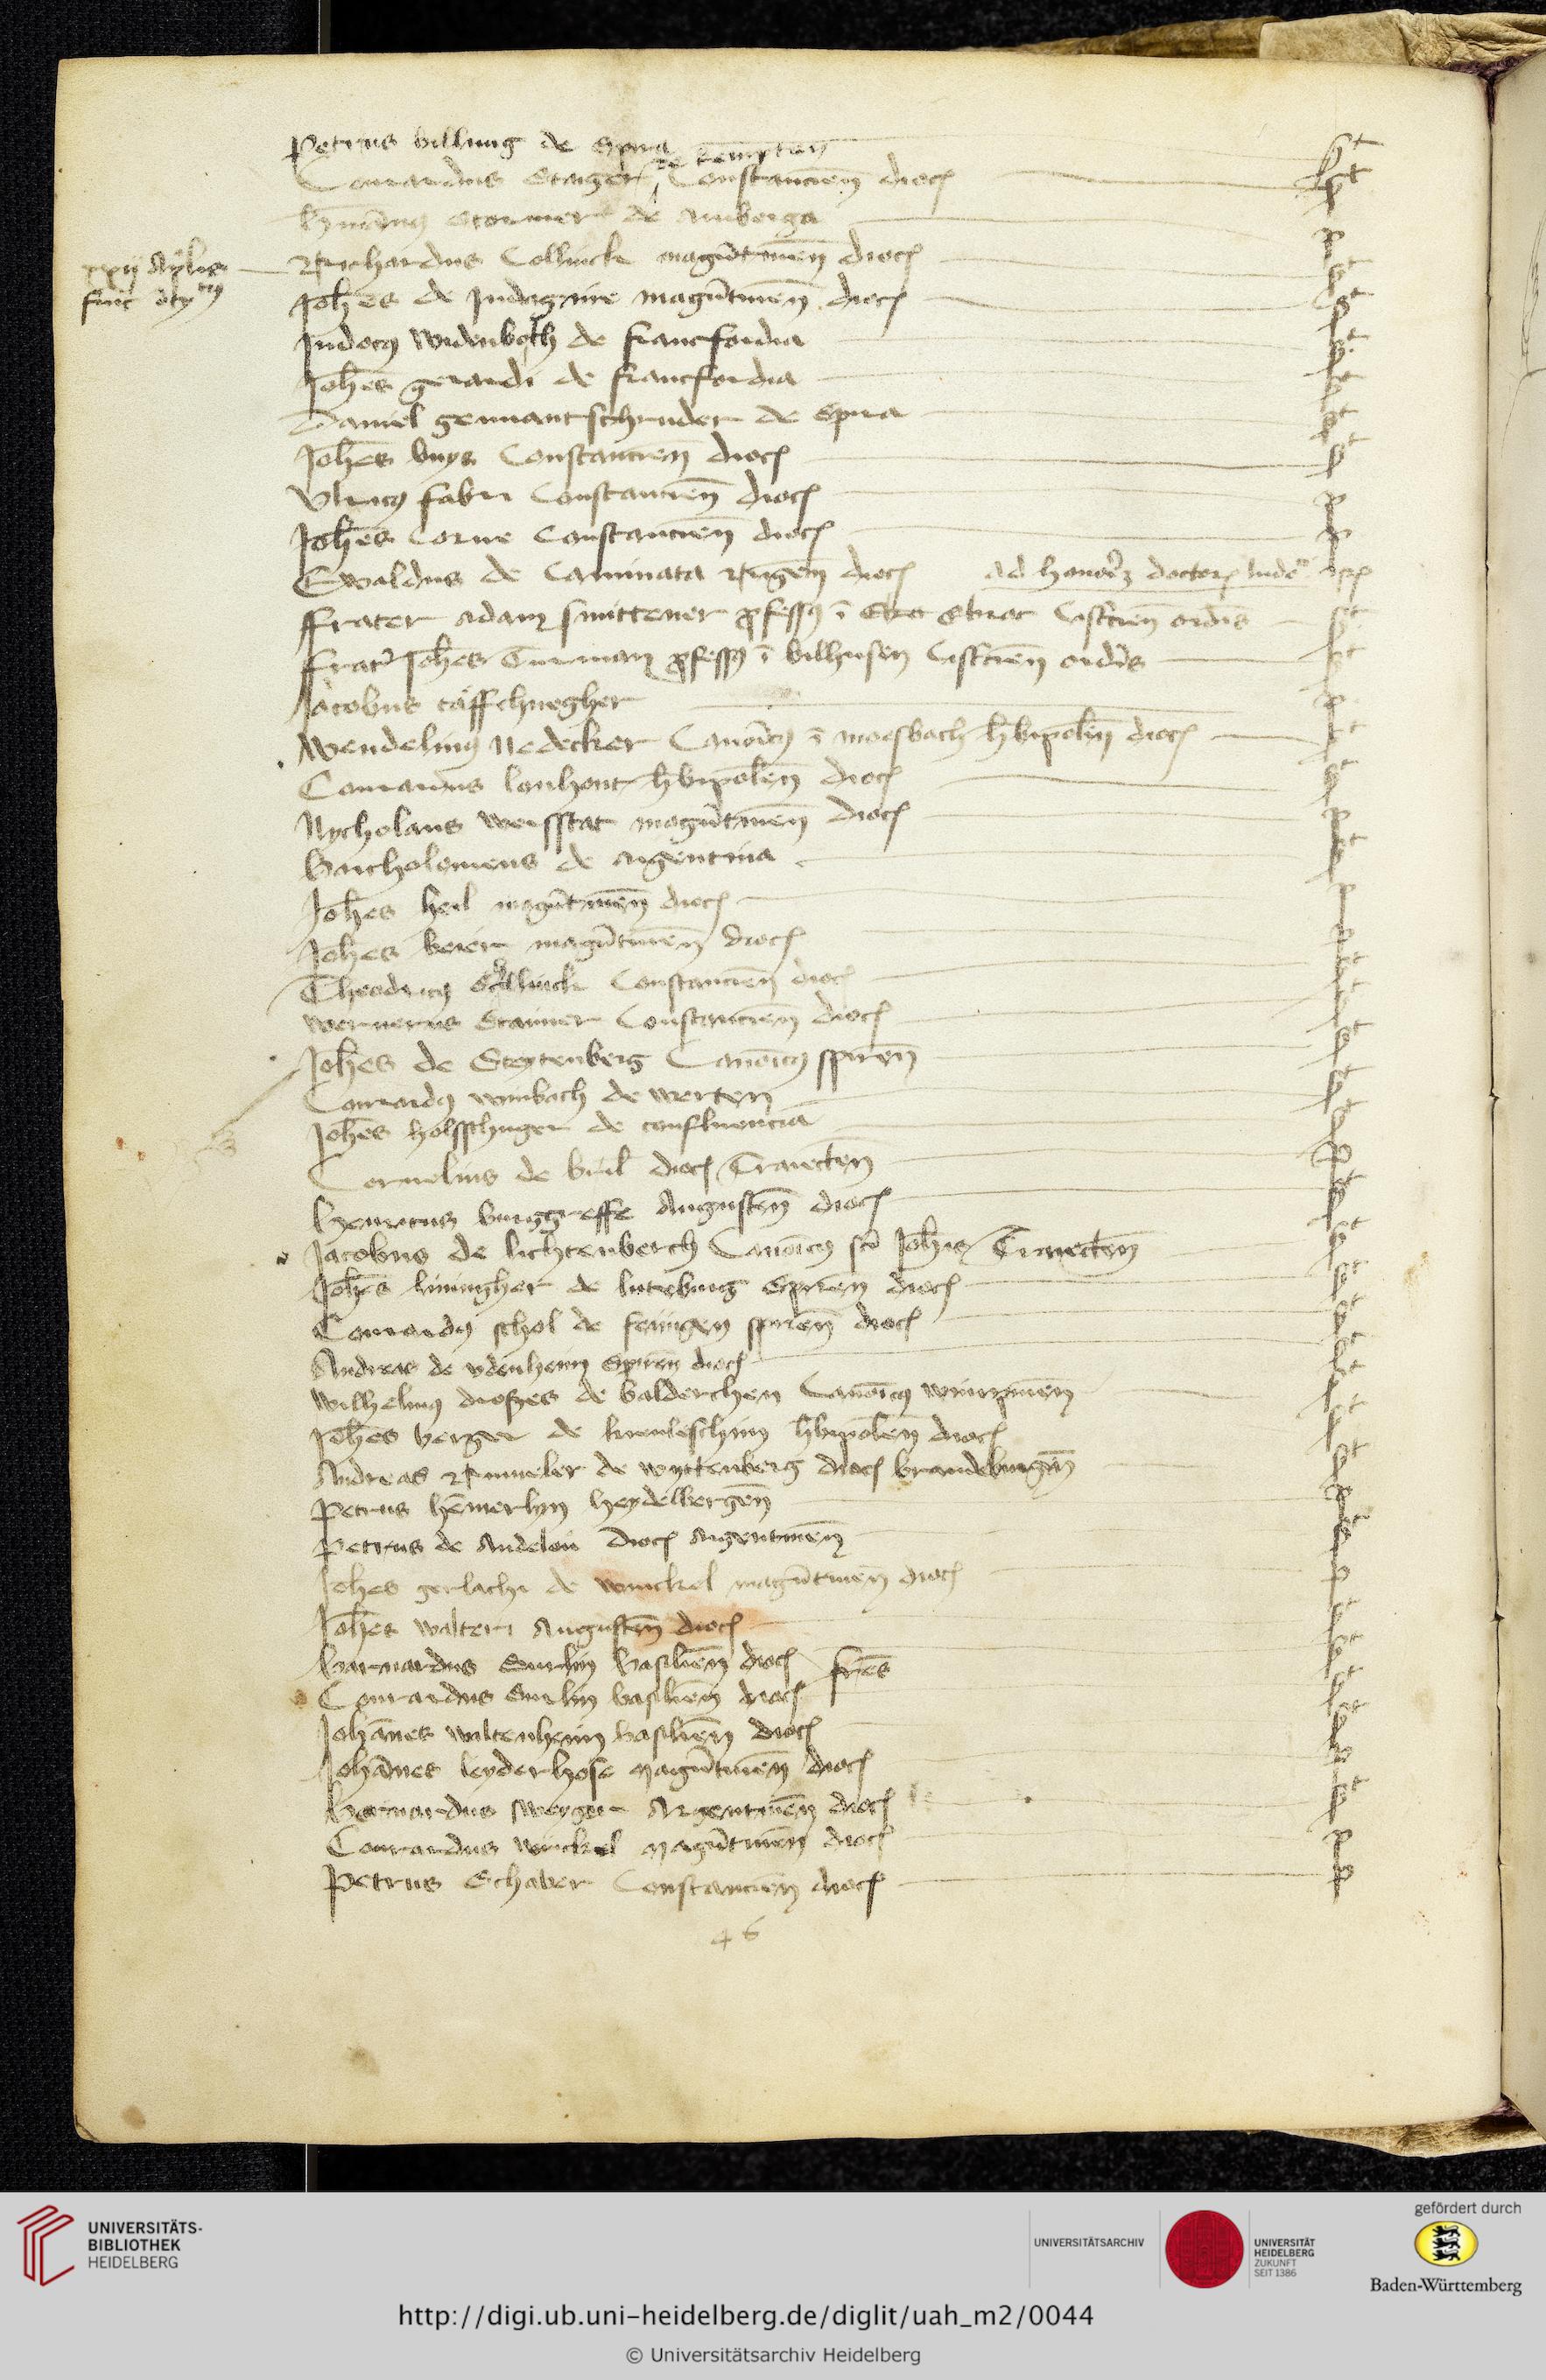 Petrus billung de Spira
de kempten
Conrardus Steiger Constancien̄ dioc̄
Hermānus Stormer de Amberga
xxij Aplis
Richardus Collinck magūtinen̄ dioc̄
Joh̄es de Indagine magūtinen̄ dioc̄
Judocus Widenbosch de francfordia
Joh̄es gerardi de francfordia
Daniel gennant schruder de Spira
Joh̄es buys Constancien̄ dioc̄
Vlricus fabri Constancien̄ dioc̄
Joh̄es Corne Constancien̄ dioc̄
Ewaldus de Caminata Rigen̄ dioc̄ ad honorē doctor̄
ffrater Adam smittener ꝓfessus ī Cistcien̄ ordīs
frater Joh̄es Turman ꝓfessus ī bilhusen Cistcien̄ ordīs
Jacobus
Wendelinus Nedecker Canoīcus ī moesbach h̄bipolen̄ dioc̄
Conrardus lanhont h̄bipolen̄ dioc̄
Nycholaus wersstat magūtinen̄ dioc̄
Bartholomeus de argentina
Joh̄es heil magūtinen̄ dioc̄
Joh̄es beier magūtinen̄ dioc̄
Theodricus Constancien̄ dioc̄
Wernerus Steimer Constancien̄ dioc̄
Joh̄es de Steytenberg Canoīcus spiren̄
Conrardus wimbach de werten
Joh̄es holsschuger de confluencia
Cornelius de bril dioc̄ Traiecten̄
Henricus burggreffe Augusten̄ dioc̄
Jacobus de lichtenberch Canoīcus scī Joh̄is Traiecten̄
Joh̄es liningher de luterburg Spiren̄ dioc̄
Conrardus schol de feiingen spiren̄ dioc̄
Andreas de vdenheim Spiren̄ dioc̄
Wilhelmus droszes de balderchen Canoīcus wimpinen̄
Joh̄es berger de h̄bipolen̄ dioc̄
Andreas Rumeler de wyttenberg dioc̄ brandeburgen̄
Petrus hēmerlyn heydelbergen̄
Petrus de Andelou dioc̄ argentinen̄
Joh̄es gerlachi de winckel magūtinen̄ dioc̄
Joh̄es walteri Augusten̄ dioc̄
Barnardus Surlin basilien̄ dioc̄ fr̄es
Conrardus Surlin basilien̄ dioc̄
Johānes wiltenheim basilien̄ dioc̄
Johānes leyderhose magūtinen̄ dioc̄
Bernardus Meyger Argentinen̄ dioc̄
Conrardus winckel magūtinen̄ dioc̄
Petrus Schaber Constancien̄ dioc̄
46
UNIVERSITÄTS-
BIBLIOTHEK
HEIDELBERG
UNIVERSITÄTSARCHIV
UNIVERSITÄT
HEIDELBERG
ZUKUNFT
SEIT 1386
gefördert durch
Baden-Württemberg
http://digi.ub.uni-heidelberg.de/diglit/uah_m2/0044
© Universitätsarchiv Heidelberg